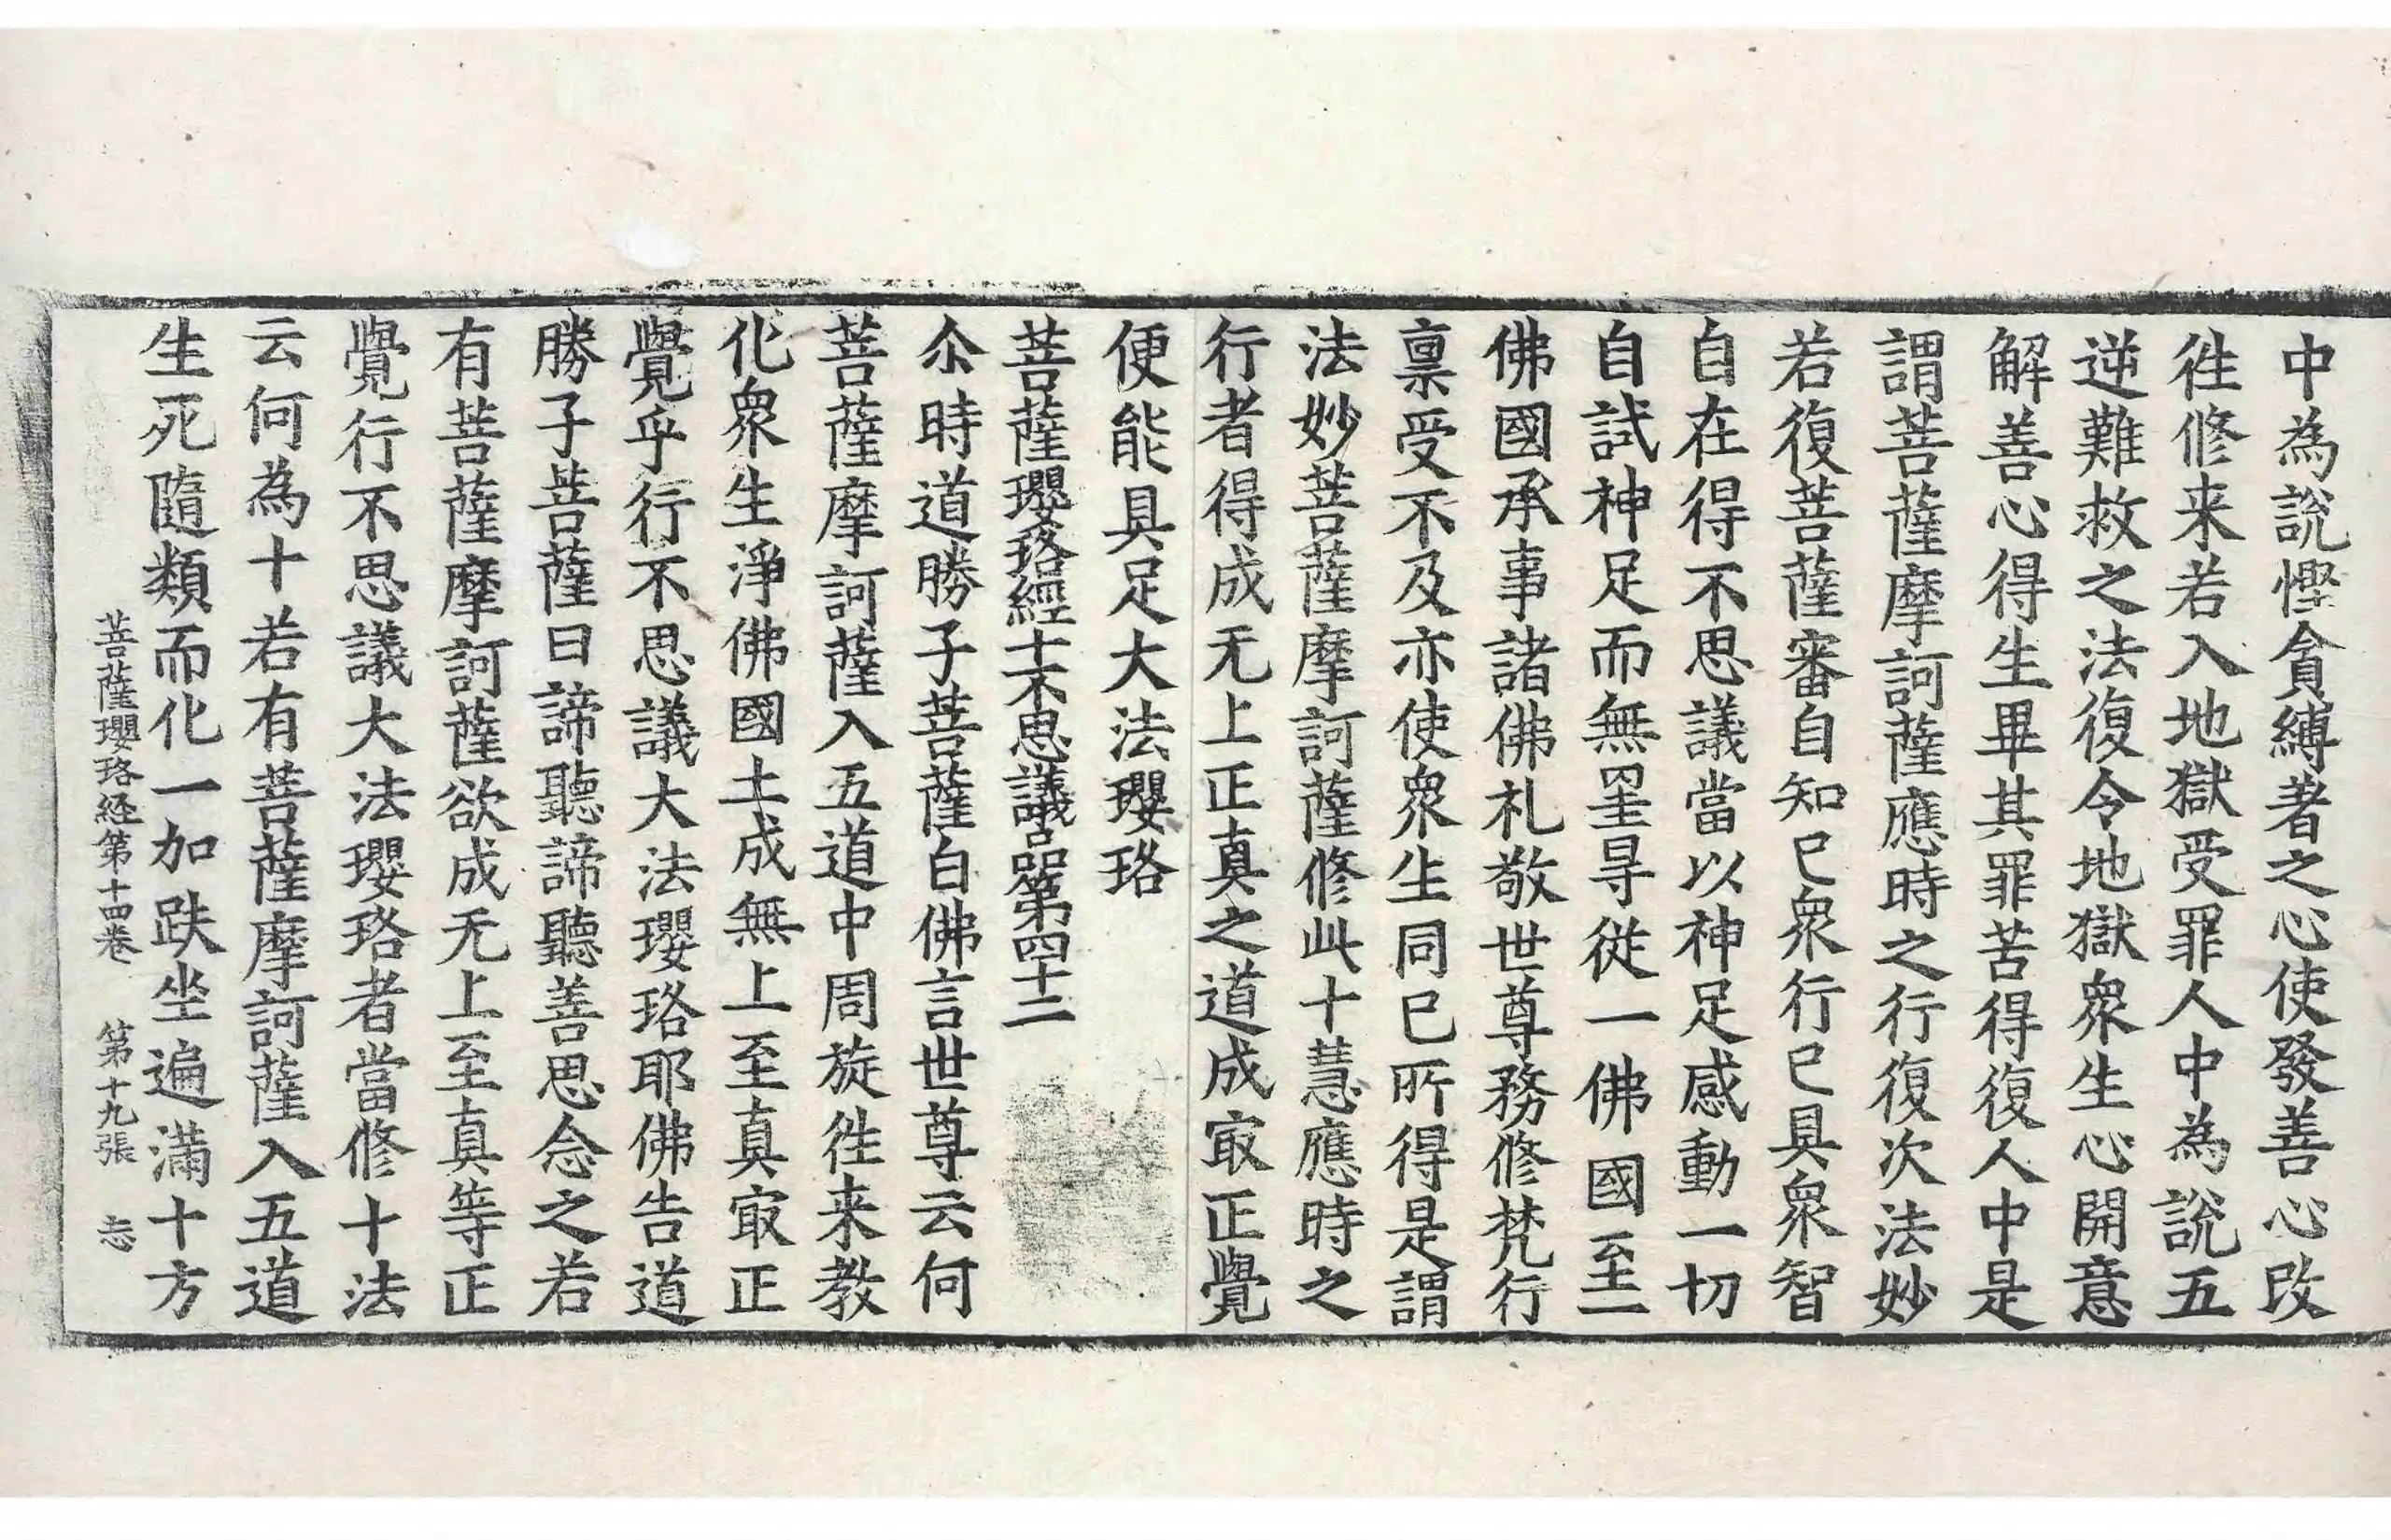 中為說慳貪縛著之心使發善心改
徃修来若入地獄受罪人中為說五
逆難救之法復令地獄衆生心開意
解善心得生畢其罪苦得復人中是
謂菩薩摩訶薩應時之行復次法妙
若復菩薩審自知已衆行已具衆智
自在得不思議當以神足感動一切
自試神足而無罣㝵從一佛國至一
佛國承事諸佛礼敬世尊務修梵行
禀受不及亦使衆生同已所得是謂
法妙菩薩摩訶薩修此十慧應時之
行者得成无上正真之道成㝡正覺
便能具足大法瓔珞
菩薩瓔珞經十不思議品第四十二
尒時道勝子菩薩白佛言世尊云何
菩薩摩訶薩入五道中周旋徃来教
化衆生淨佛國土成無上至真㝡正
覺乎行不思議大法瓔珞耶佛告道
勝子菩薩曰諦聽諦聽善思念之若
有菩薩摩訶薩欲成无上至真等正
覺行不思議大法瓔珞者當修十法
云何為十若有菩薩摩訶薩入五道
生死隨類而化一加趺坐遍滿十方
菩薩瓔珞経第十四卷 第十九張 忘